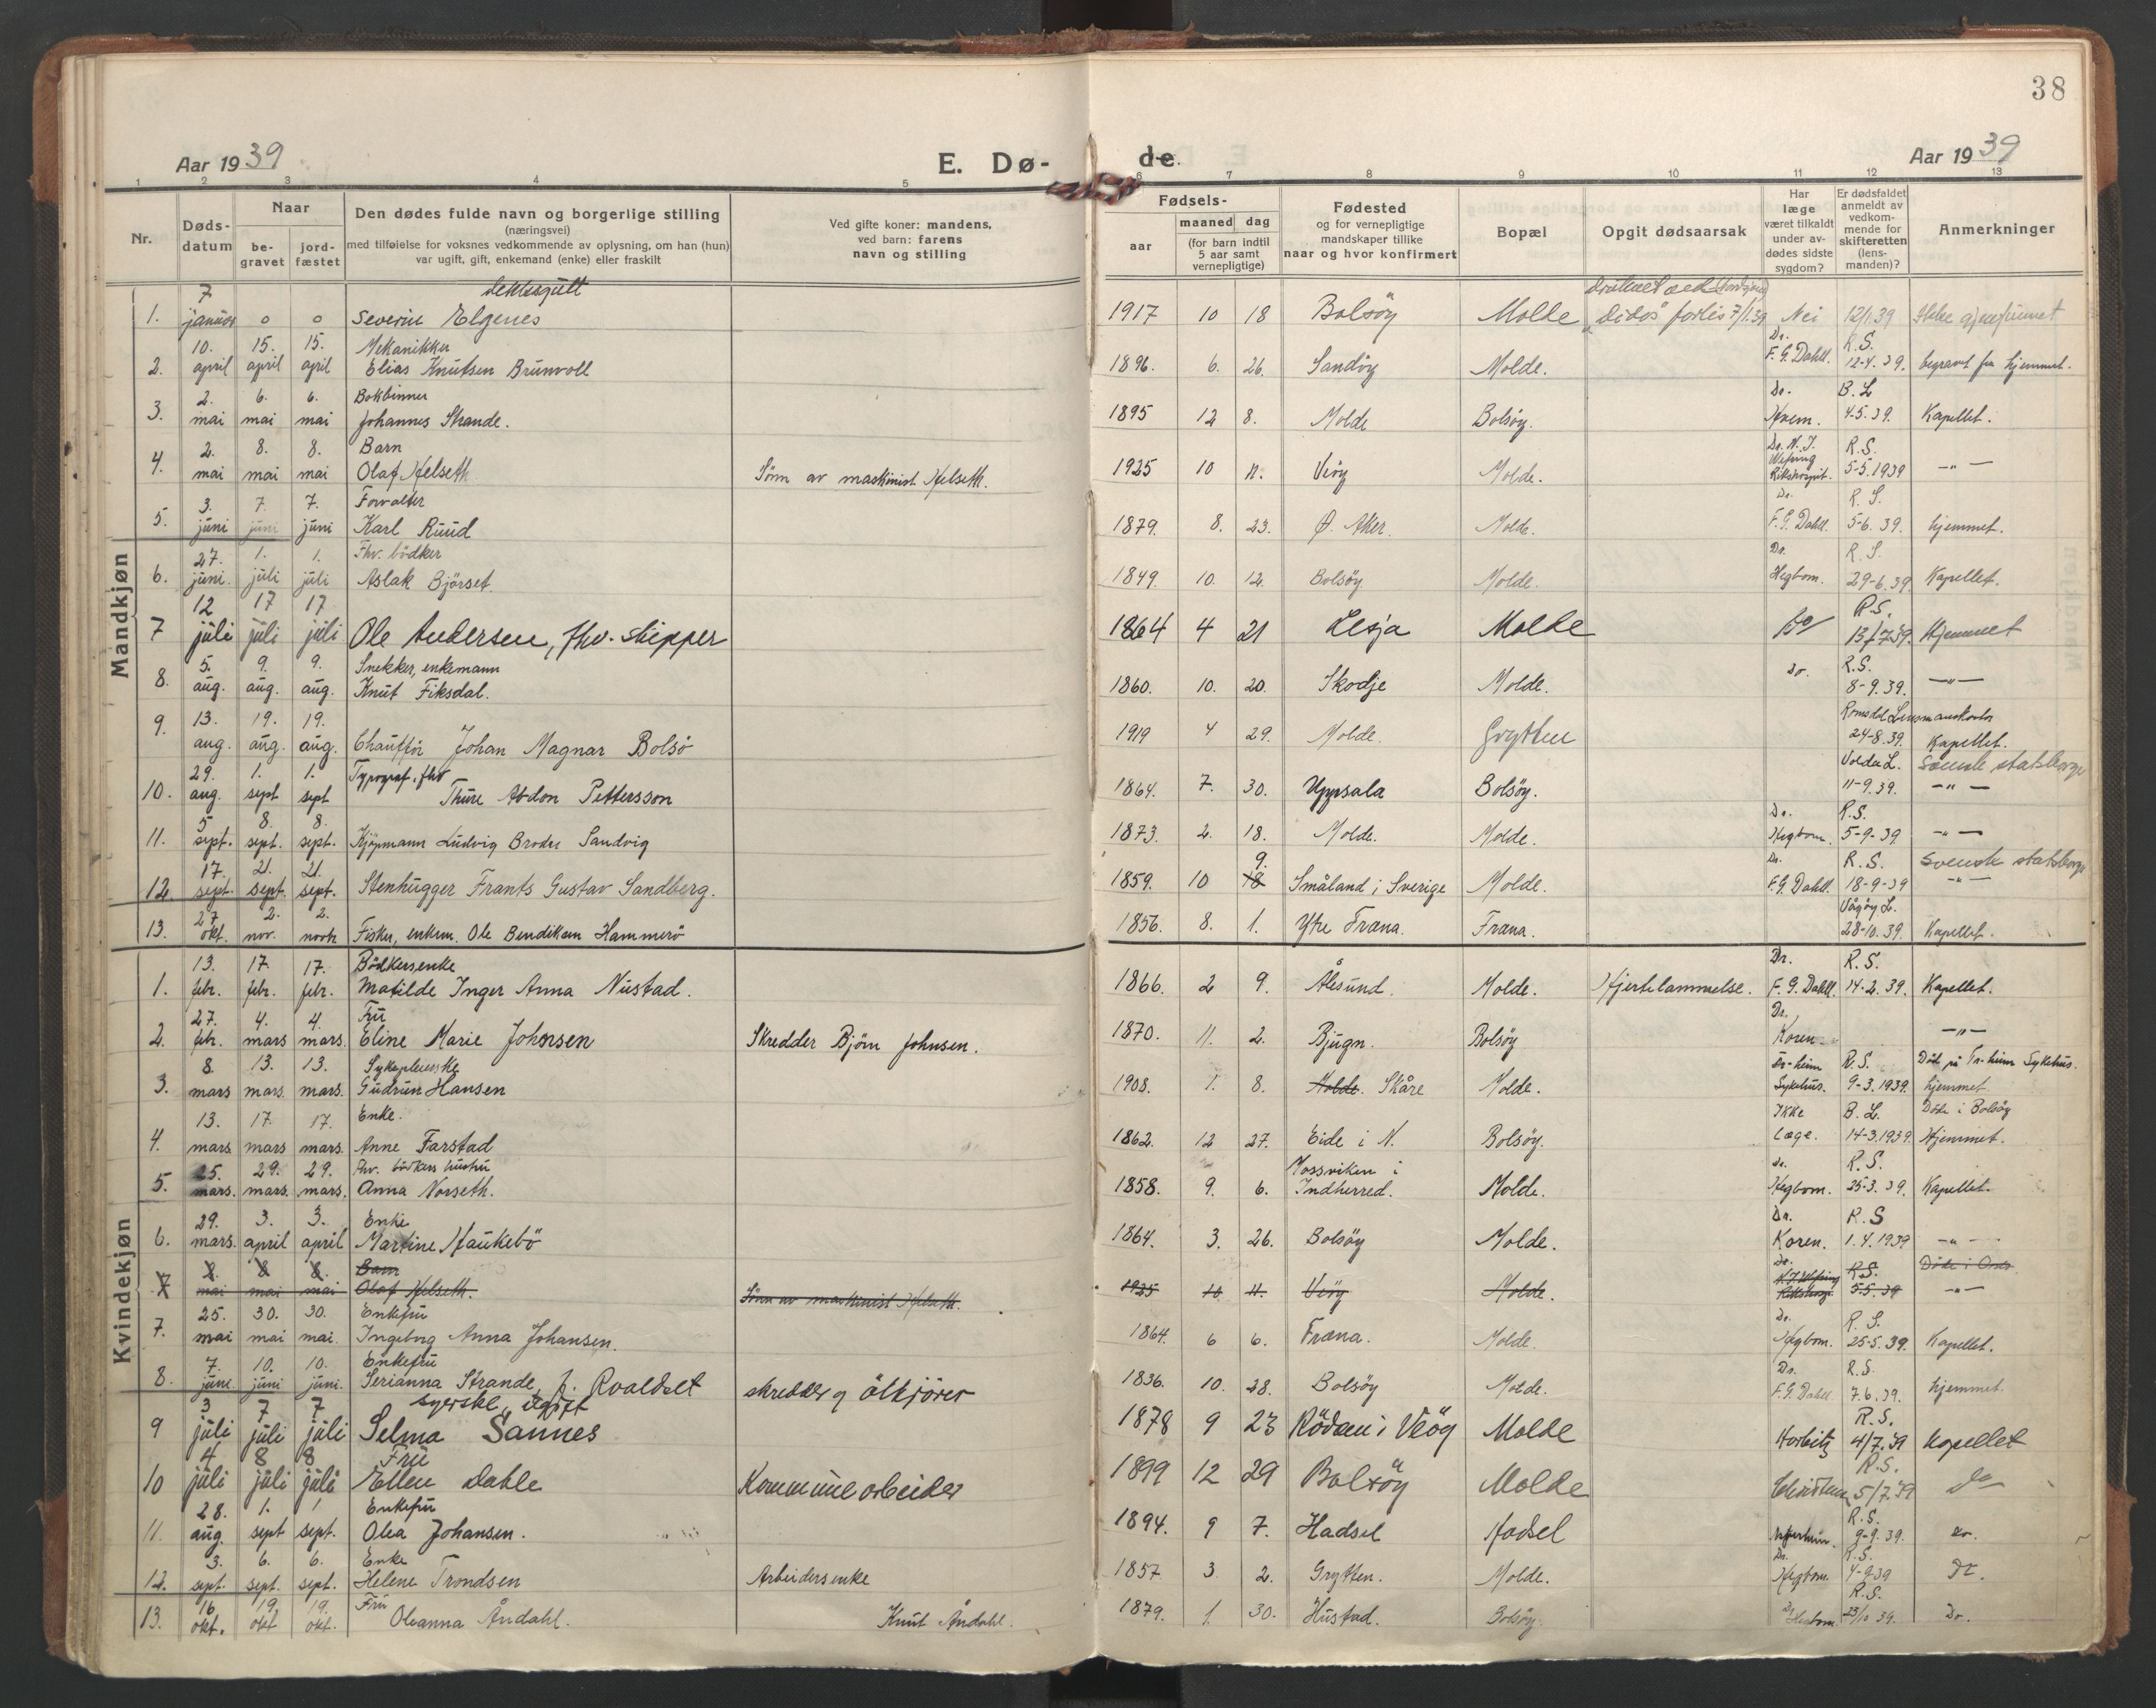 38
Aar 1939 E. Dø- de. Aar 1939
1 2 3 4 5 6 7 8 9 10 11 12 13
Nr.
Døds-datum
Naar
be-gravet
jord-fæstet
Den dødes fulde navn og borgerlige stilling
(næringsvei)
med tilføielse for voksnes vedkommende av oplysning, om han (hun)
var ugift, gift, enkemand (enke) eller fraskilt
Ved gifte koner: mandens,
ved barn: farens
navn og stilling
Fødsels-
aar
maaned dag
(for barn indtil
5 aar samt
vernepligtige)
Fødested
og for vernepligtige
mandskaper tillike
naar og hvor konfirmert
Bopæl
Opgit dødsaarsak
Har
læge
været tilkaldt
under av-
dødes sidste
sygdom?
Er dødsfaldet
anmeldt av
vedkom-
mende for
skifteretten
(lens-
manden)?
Anmerkninger
Mandkjøn
1. 7 januar o o dekksgutt Severin Elgenes 1917 10 18 Bolsöy Molde "Didos" forlis 7/1.39 Nei 12/1.39 Ikke gjenfunnet
2. 10. april 15. april 15. april Mekaniker Elias Knutsen Brunvoll 1896. 6. 26. Sandöy Molde. Dr. F. G. Dahll. R.S. 12-4.39. begravet fra hjemmet.
3. 2. mai 6. mai 6. mai Bokbinner Johannes Strande. 1895 12 8. Molde Bolsöy. Dr. B. L 4.5.39. Kapellet.
4. 2. mai 8. mai 8. mai Barn Olaf Helseth Sönn av maskinist Helseth. 1925 10 11. Veöy Molde. Dr. N. J. R.S. 5-5.1939 -"-
5. 3. juni 7. juni 7. juni Forvalter Karl Ruud 1879. 8. 23. Ø. Aker. Molde. Dr. F. G. Dahll. R.S. 5-6.39. hjemmet.
6. 27. juni 1. juli 1. juli Fhv. bödker Aslak Björset. 1849. 10. 12. Bolsöy Molde. Dr. Hegbom. R.S. 29-6.39 Kapellet.
7 12 juli 17 juli 17 juli Ole Andersen, fhv. skipper 1864 4 21 Lesja Molde R.S. 13/7.39. Hjemmet
8. 5. aug. 9. aug. 9. aug. Snekker, enkemann Knut Fiksdal. 1860. 10. 20. Skodje Molde. do. R.S. 8-9.39. -"-
9. 13. aug. 19. aug. 19. aug. Chaufför Johan Magnar Bolsö 1919 4 29. Molde. Grytten Romsdal Lensmannkontor 24-8.39. Kapellet.
10. 29. aug. 1. sept 1. sept Typograf, fhv Thure Abdon Pettersson 1864. 7. 30. Uppsala Bolsöy. Volda L. 11-9.39. Svensk statsborger -"-
11. 5 sept. 8. sept. 8. sept. Kjöpmann Ludvig Broder Sandvig 1873. 2. 18. Molde. Molde. Dr. Hegbom. R.S. 5-9-39 -"-
12. 17. sept. 21. sept. 21. sept. Stenhugger Frants Gustav Sandberg. 1859. 10 9. 18 Småland i Sverige Molde. Dr. F. G. Dahll. R.S. 18-9-39 Svensk statsborger -"-
13. 27 okt. 2. nov. 2. novb. Fisker, enkem. Ole Bendiksen Hammerö 1856. 8. 1. Ytre Fræna. Fræna. Vågöy L. 28-10.39. Kapellet.
Kvindekjøn
1. 13. febr. 17. febr. 17. febr. Bödkersenke Matilde Inger Anna Nustad. 1866. 2 9. Ålesund. Molde. Hjertelammelse. Dr. F. G. Dahll. R.S. 14-2.39. Kapellet.
2. 27. febr. 4. mars 4. mars. Fru Eline Marie Johnsen Skredder Björn Johnsen. 1870. 11. 2. Bjugn. Bolsöy Dr. Koren. -"-
3. 8. mars 13. mars. 13. mars. Sykepleierske Gudrun Hansen 1908. 1. 8. Molde. Skåre Molde. Tr-heim Sykehus. R.S. 9-3.1939. Döde på Tr-heim Sykehus. hjemmet
4. 13. mars 17. mars 17. mars. Enke. Anne Farstad 1862. 12 27. Eide i N. Bolsöy. Ikke læge. B. L. 14-3.1939. Döde i Bolsöy Hjemmet.
5. 25. mars. 29. mars. 29. mars. Fhv. bödkers hustru Anna Norseth. 1858. 9. 6. Mossviken i Indherred. Molde. Dr. Hegbom. R.S. 25-3.39. Kapellet.
6. 29. mars. 3. april 3. april Enke Martine Haukebö 1864. 3. 26. Bolsöy Molde. Dr. Koren. R.S 1.4.1939 -"-
7 2. mai 8 mai 8. mai Barn Olaf Helseth. Sönn av maskinist Helseth. 1925 10 11. Veöy Molde. Dr. R.S. 5-5.39 Döde i Oslo -"-
7. 25. mai 30. mai 30. mai. Enkefru Ingeborg Anna Johansen. 1864. 6 6. Fræna. Molde. Dr. Hegbom. R.S. 25-5.39. Kapellet.
8. 7. juni 10. juni 10. juni. Enkefru Serianna Strande, f. Roaldset skredder og ölkjörer 1836. 10. 28. Bolsöy Molde. Dr. F. G. Dahll R.S. 7.6.39. hjemmet.
9 3 juli 7 juli 7 juli syerske, ugift Selma Sannes 1878 9 23 Rödven i Veöy Molde R.S. 4/7.39 Kapellet
10 4 juli 8 juli 8 juli Fru Ellen Dahle Kommunearbeider 1899 12 29 Bolsöy Molde R.S. 5/7.39 do
11. 28. aug. 1. sept 1 sept. Enkefru Olea Johansen. 1894. 9 7. Hadsel Hadsel R.S. 9-9.39. do.
12. 3. sept. 6. sept. 6. sept. Enke Helene Trondsen Arbeidersenke 1857 3 2. Grytten. Molde. Dr. Hegbom R.S. 4-9-39
13. 16 okt. 19. okt 19. okt. Fru Oleanna Åndahl. Knut Åndahl. 1879. 1. 30. Hustad. Bolsöy. Dr Hegbom. R.S. 23/10 39. Do.